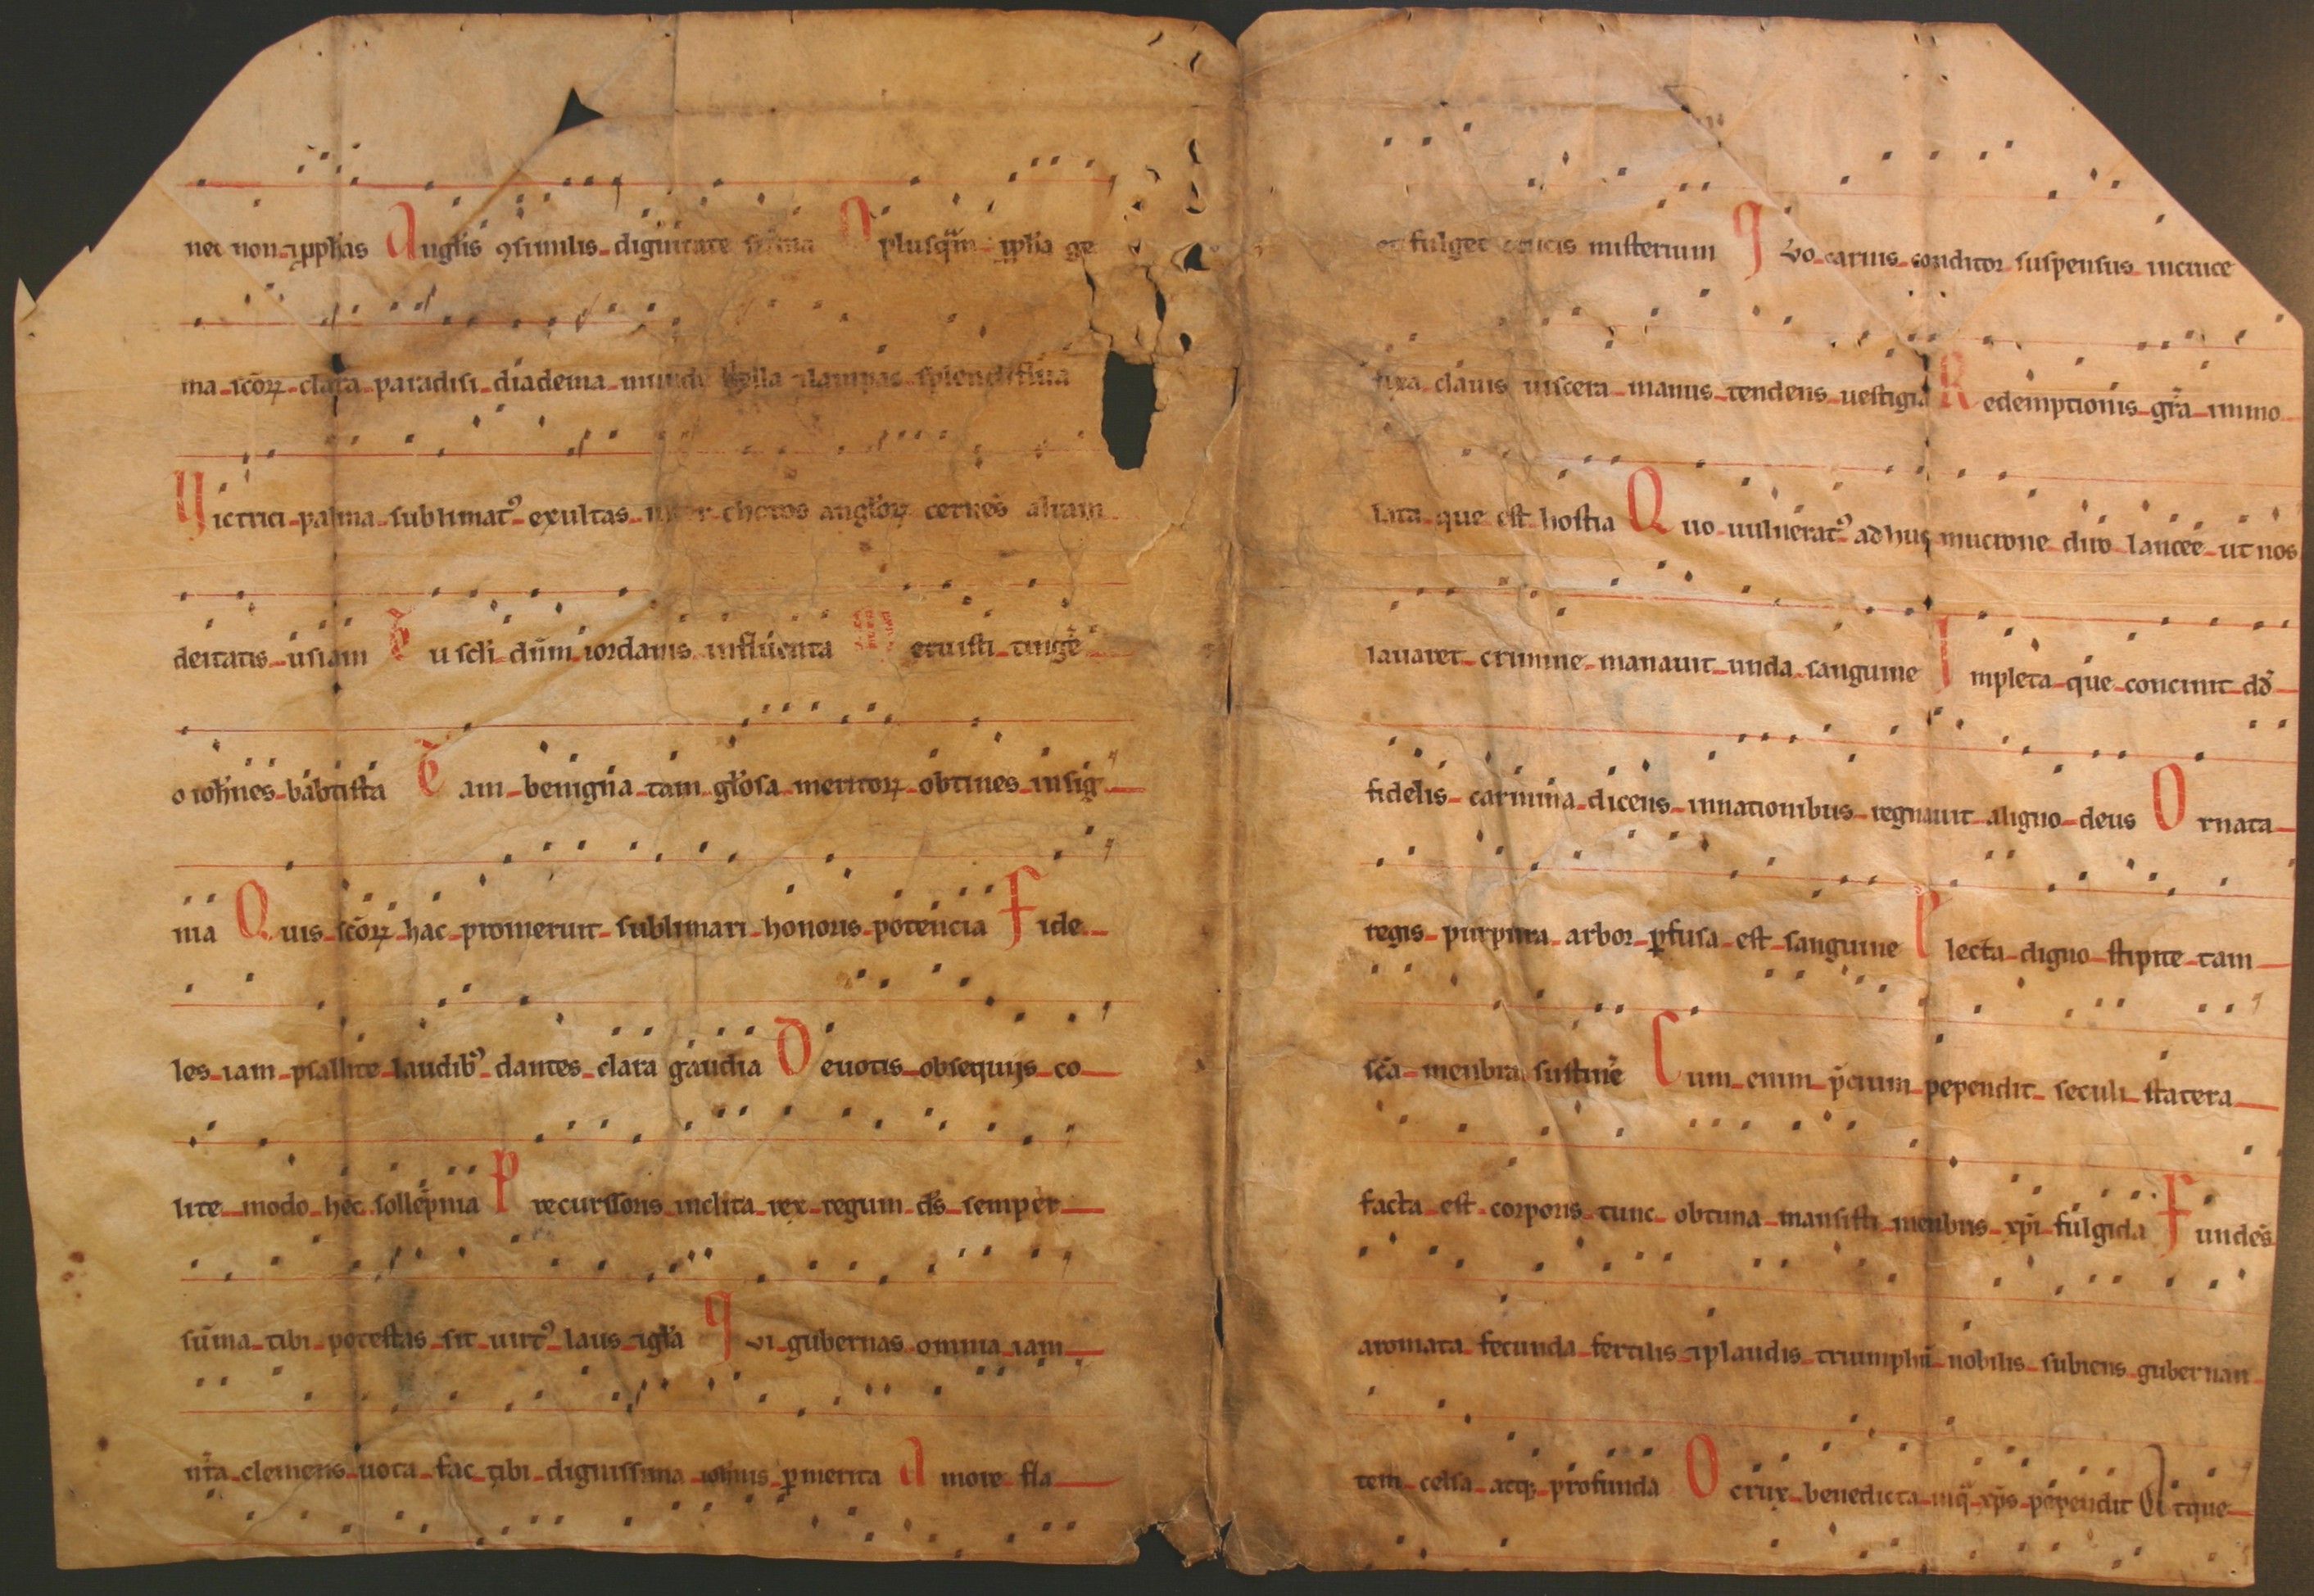 nec non ⁊ pphas Anglis ꝯsimilis dignitate plusqm ge
ma scoꝝ clara paradisi diadema mundi stella lampas splendiflua
Victrici palma sublimatꝰ exultas inter choros angloꝝ cernēs almam
deitatis usiam Tu scli dnm iordanis influenta Meruisti tinge
o iohnes babtista Tam benigna tam glosa meritoꝝ obtines insig
nia Quis scoꝝ hac promeruit sublimari honoris potencia Fide
les iam psallite laudibꝰ dantes clara gaudia Deuotis obsequijs co
lite modo hec sollēpnia Precurssoris inclita rex regum ds semper
sūma tibi potestas sit uirtꝰ laus ⁊ gla Qvi gubernas omnia iam
nra clemens uota fac tibi dignissima iohnis ꝑ merita Amore fla
et fulget crucis misterium Qvo carnis conditor suspensus in cruce
fixa clauis uiscera manus tendens uestigia Redemptionis gra immo
lata que est hostia Quo uulneratꝰ ad huc mucrone diro lancee ut nos
lauaret crimine manauit unda sanguine Impleta que concinit dd
fidelis carmina dicens innationibus regnauit aligno deus Ornata
regis purpura arbor ꝑfusa est sanguine Electa digno stipite tam
sca menbra Cum enim pcium pependit seculi statera
facta est corporis tunc obtima mansisti menbris xpi fulgida Fundēs
aromata fecunda fertilis ⁊ plaudis triumphū nobilis subiens gubernan
tem celsa atqꝫ profunda O crux benedicta inq xps pependit Atque